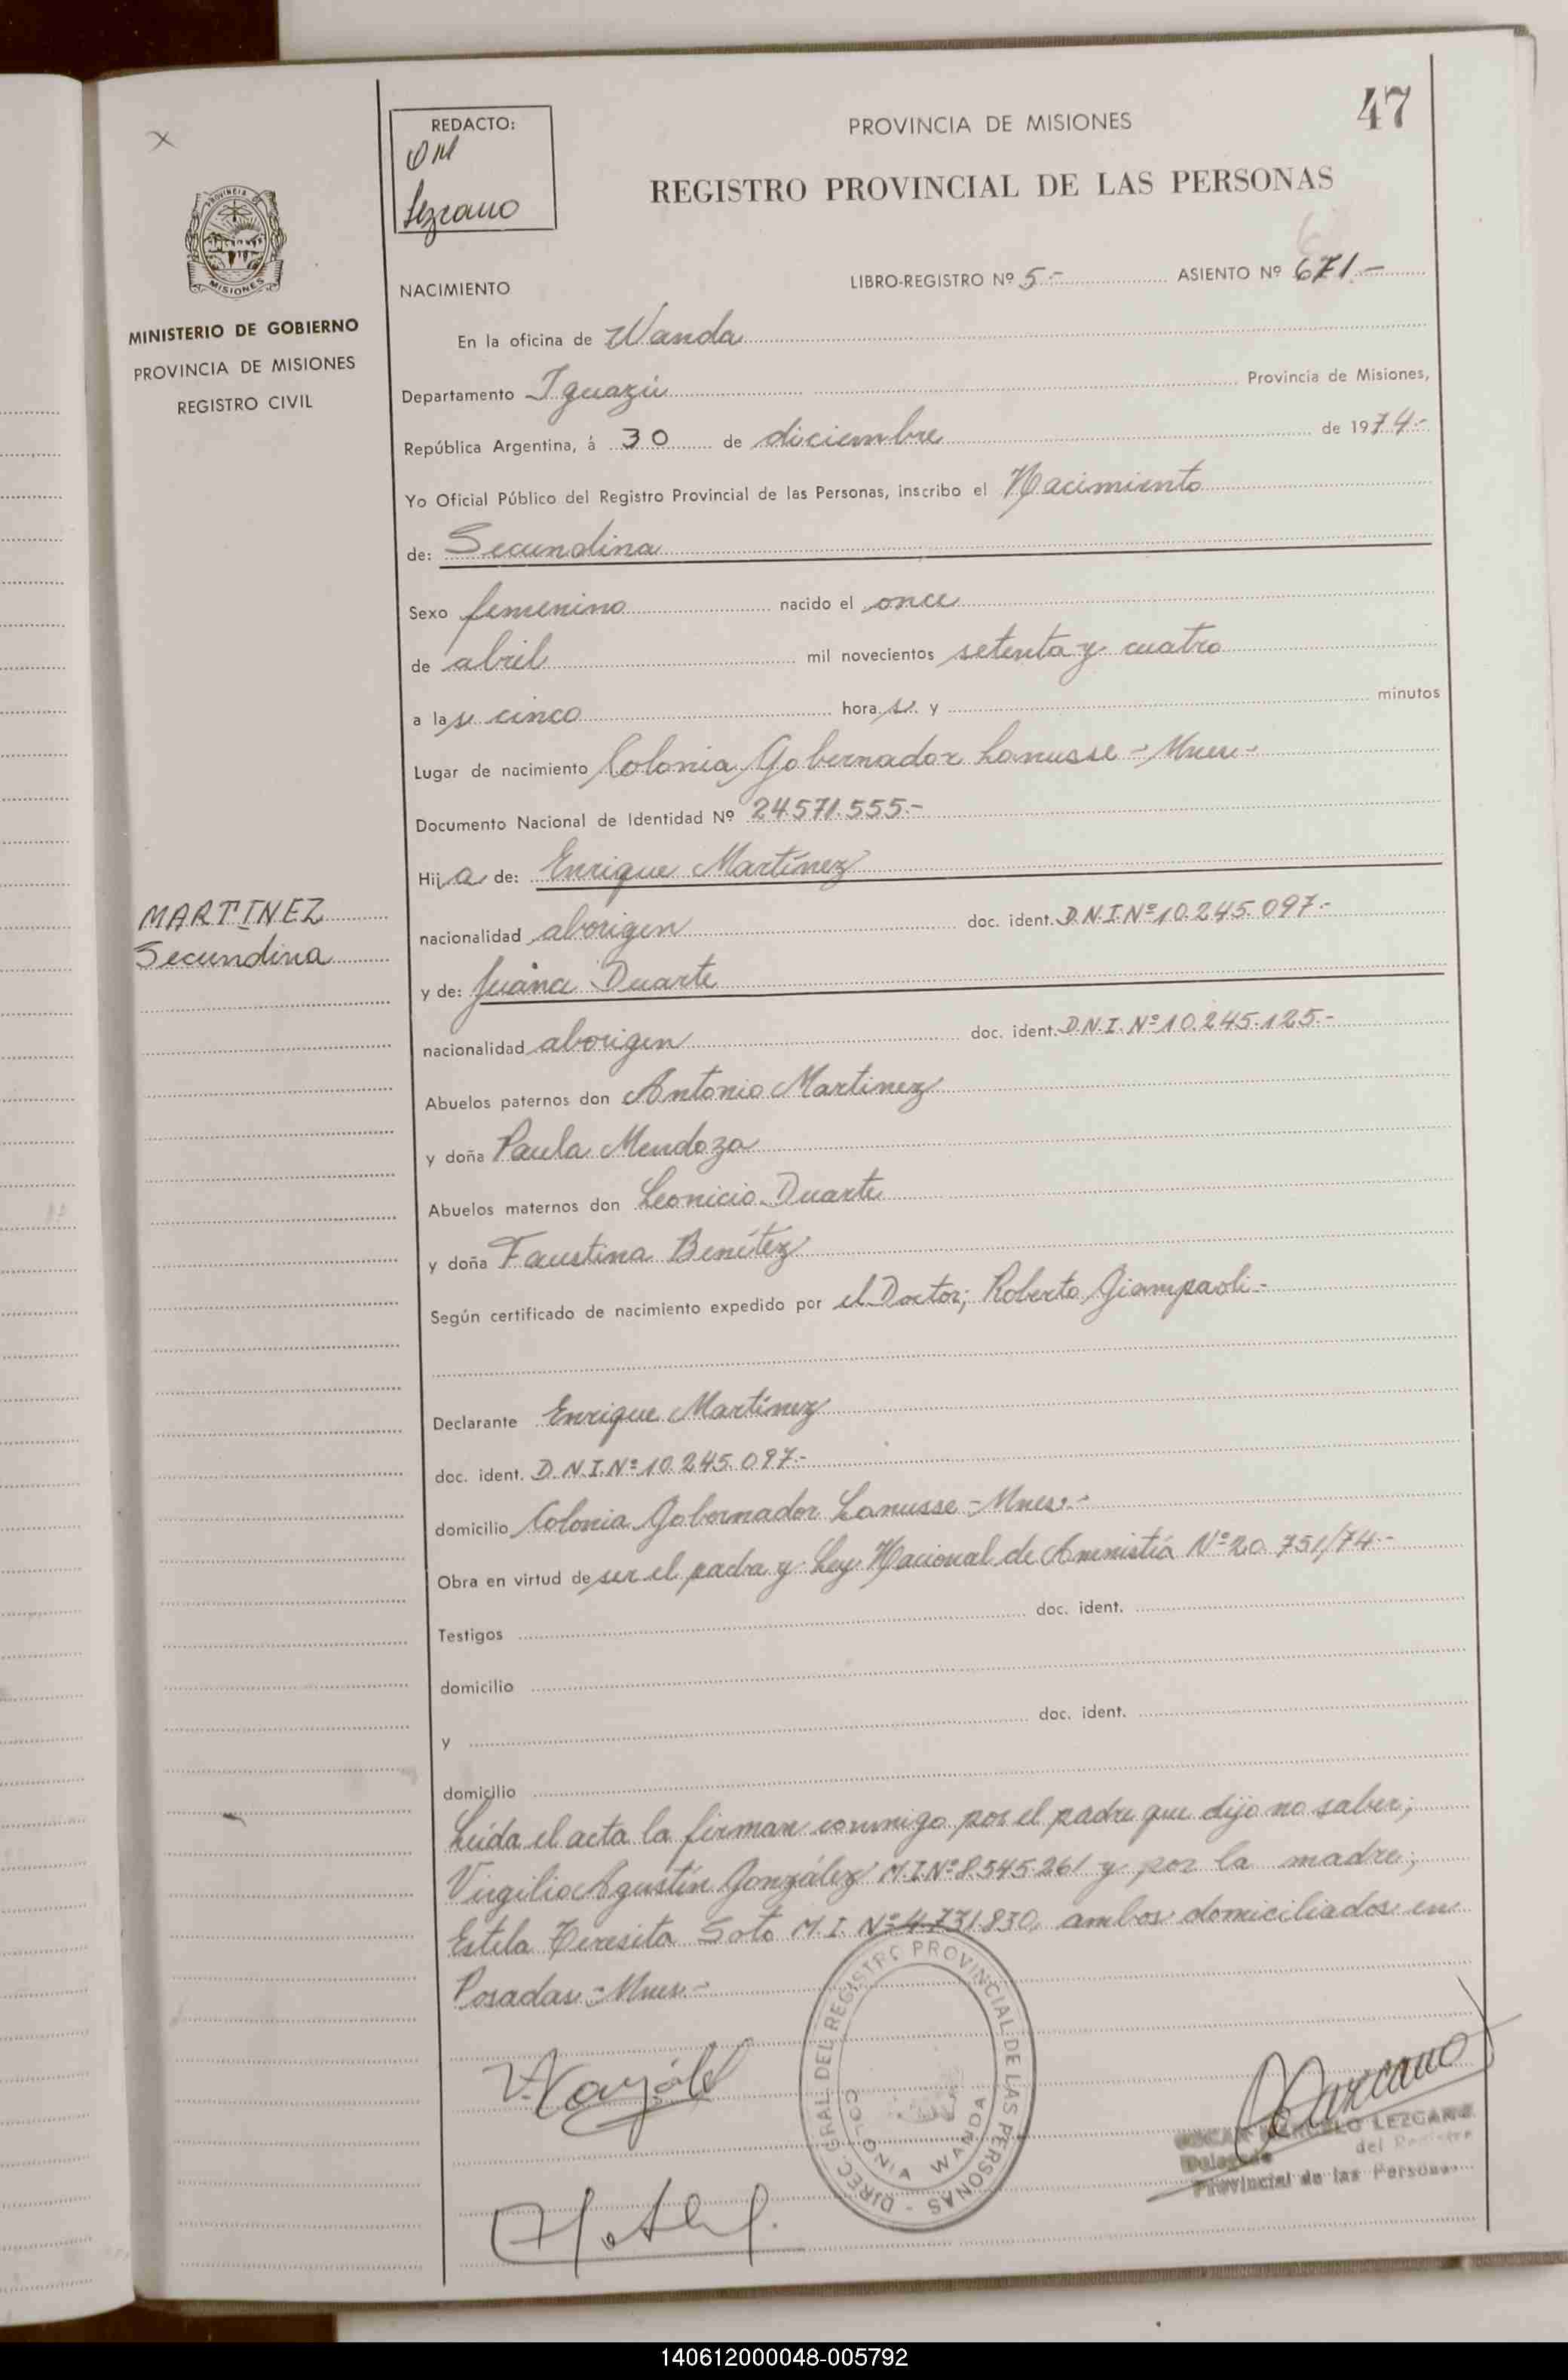 47
REDACTO:
OM
Lezcano
PROVINCIA DE MISIONES
REGISTRO PROVINCIAL DE LAS PERSONAS
PROVINCIA DE
MISIONES
MINISTERIO DE GOBIERNO
PROVINCIA DE MISIONES
REGISTRO CIVIL
NACIMIENTO LIBRO-REGISTRO Nº 5.- ASIENTO Nº 671.-
En la oficina de Wanda
Departamento Iguazú Provincia de Misiones,
República Argentina, á 30 de diciembre de 1974.-
Yo Oficial Público del Registro Provincial de las Personas, inscribo el Nacimiento
de: Secundina
Sexo femenino nacido el once
de abril mil novecientos setenta y cuatro
a las cinco horas y minutos
Lugar de nacimiento Colonia Gobernador Lanusse - Mnes.-
Documento Nacional de Identidad Nº 24.571.555.-
Hija de: Enrique Martínez
MARTINEZ
Secundina
nacionalidad aborigen doc. ident. D.N.I. Nº 10.245.097.-
y de: Juana Duarte
nacionalidad aborigen doc. ident. D.N.I. Nº 10.245.125.-
Abuelos paternos don Antonio Martinez
y doña Paula Mendoza
Abuelos maternos don Leonicio Duarte
y doña Faustina Benítez
Según certificado de nacimiento expedido por el Doctor; Roberto Giampaoli.-
Declarante Enrique Martínez
doc. ident. D.N.I. Nº 10.245.097.-
domicilio Colonia Gobernador Lanusse - Mnes.-
Obra en virtud de ser el padre y Ley Nacional de Amnistía Nº 20.751/74.-
Testigos doc. ident.
domicilio
y doc. ident.
domicilio
Leída el acta la firman conmigo por el padre que dijo no saber;
Virgilio Agustín González M.I. Nº 8.545.261 y por la madre;
Estela Teresita Soto M.I. Nº 4.731.830, ambos domiciliados en
Posadas - Mnes.-
DIREC. GRAL. DEL REGISTRO PROVINCIAL DE LAS PERSONAS -
COLONIA WANDA
OSCAR MARCELO LEZCANO
Delegado del Registro
Provincial de las Personas
140612000048-005792